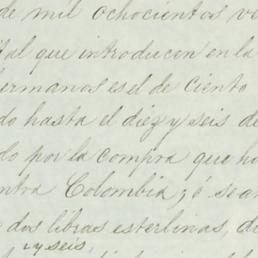 de mil ochocientos ve
al que introducen en la
hermanos es el de ciento
do hasta el diez y seis de
do por la compra que h
ntra Colombia; ó sean
dos libras esterlinas, d
y seis,